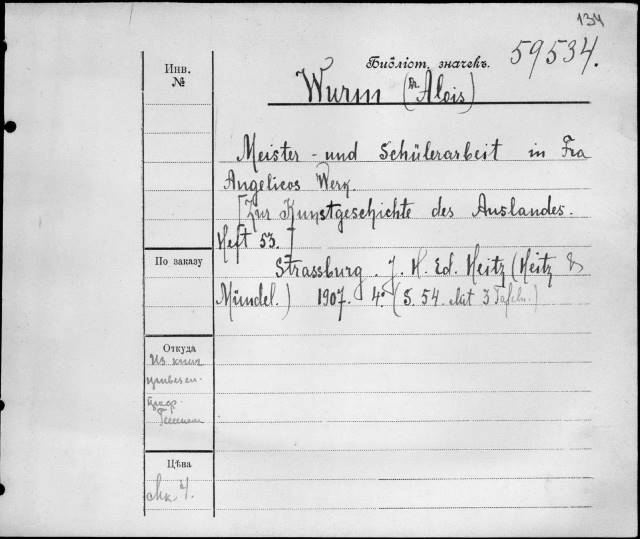 134
Инв.
№
Библіот. значекъ. 59534.
Wurm (Dr. Alois)
Meister- und Schülerarbeit in Fra
Angelicos Werk.
[Zur Kunstgeschichte des Auslandes.
Heft 53.]
По заказу
Strassburg. J. H. Ed. Heitz (Heitz &
Mündel.) 1907. 4º (S. 54. Mit 3 Tafeln.)
Откуда
Из книг
привезен.
проф.
Цѣна
Мк. 4.